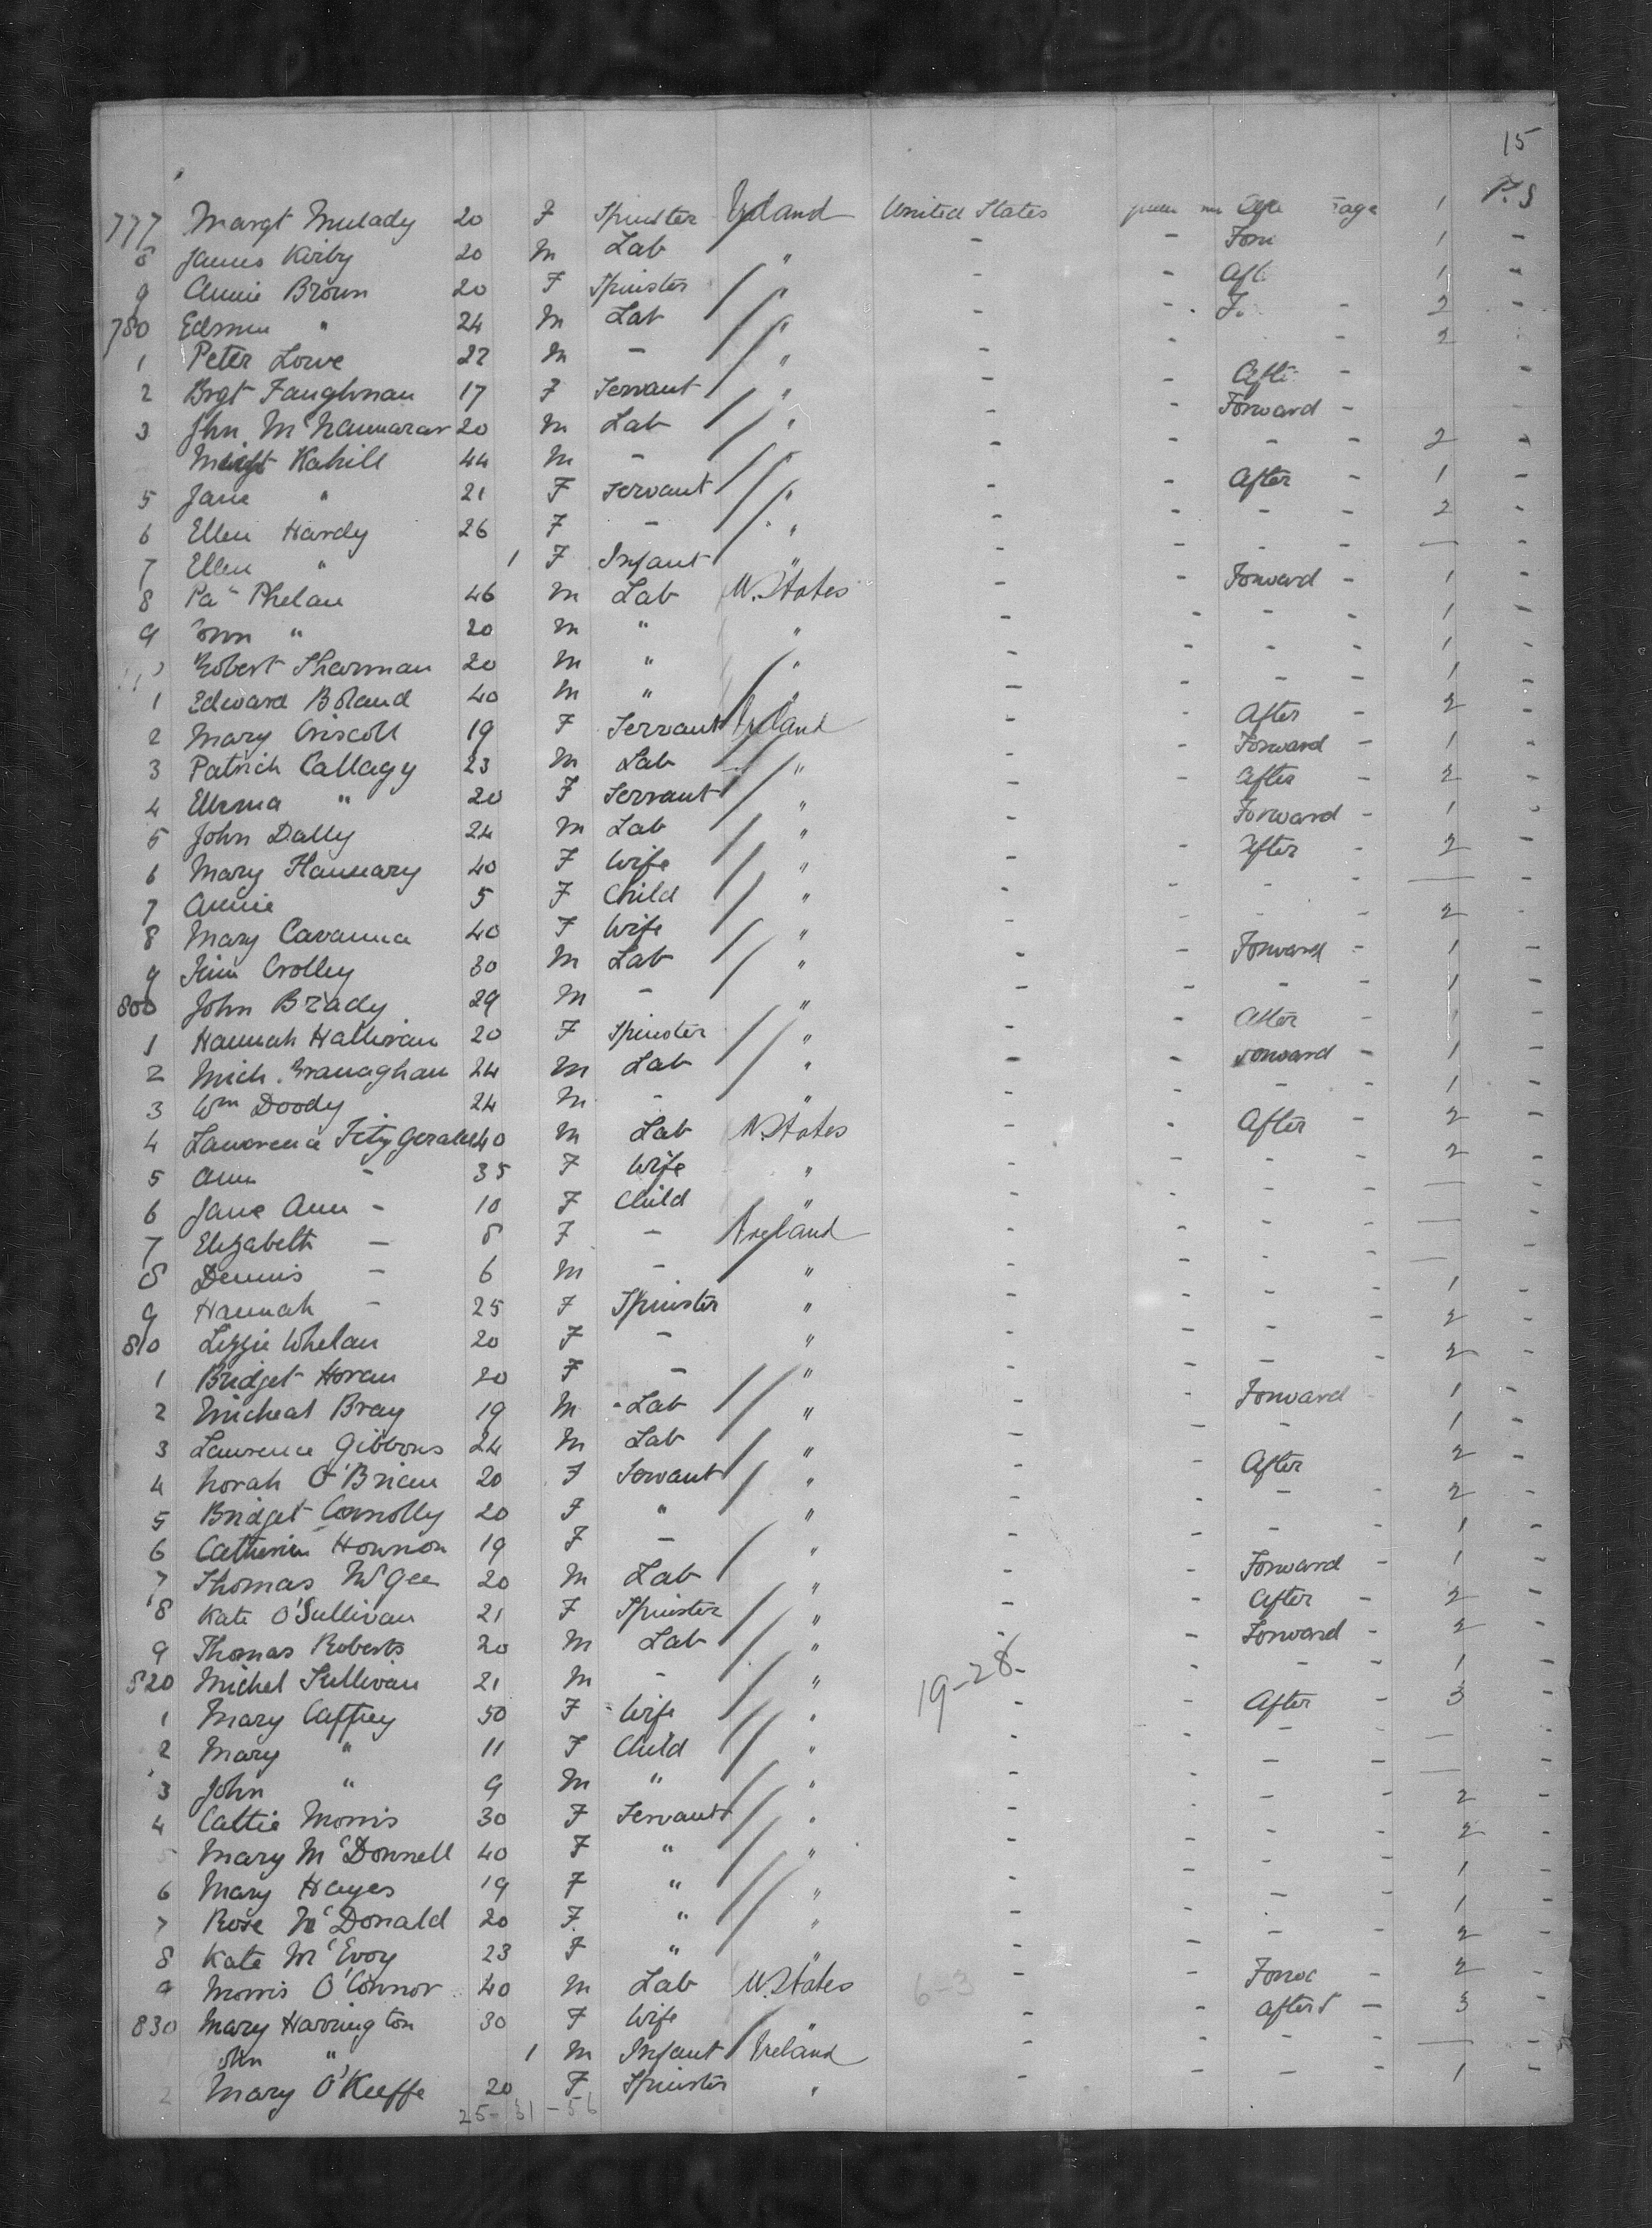 15
777 Margt Mulady 20 F Spinster Ireland United States 1 P.S
8 James Kirby 20 M Lab " - - 1 -
9 Annie Brown 20 F Spinster " - - Aft 1 -
780 " 24 M Lab " - - F. - 2 -
1 Peter Lowe 22 M - " - - - 2
2 Brgt Faughnan 17 F Servant " - - Afte - -
3 Jhn 20 M Lab " - - Forward -
Kahill 44 M - " - - - - 2 -
5 Jane " 21 F Servant " - - After - 1 -
6 Ellen Hardy 26 F - " - - - - 2 -
7 Ellen " 1 F Infant " - - - - — -
8 Pa Phelan 46 M Lab U. States - - Forward - 1 -
9 " 20 M " " - - - - 1 -
Robert Sharman 20 M " " - - - - 1 -
1 Edward Boland 40 M " " - - - - 1 -
2 Mary Criscoll 19 F Servant Ireland - - After - 2 -
3 Patrick Callagy 23 M Lab " - - Forward - 1 -
4 " 20 F Servant " - - After - 2 -
5 John Dally 24 M Lab " - Forward - 1 -
6 Mary Flannary 40 F Wife " - - After - 2 -
7 Annie 5 F Child " - - - - — -
8 Mary Cavanna 40 F Wife " - - - 2 -
9 Jim Crolley 30 M Lab " - - Forward - 1 -
800 John Brady 29 M - " - - - - 1 -
1 Hannah Hallivan 20 F Spinster " - - After - 1 -
2 Mich. Granaghan 24 M Lab " - - Forward - 1 -
3 Wm Doody 24 M - " - - - 1 -
4 Lawrence Fitzgerald 40 M Lab U. States - - After - 2 -
5 Ann - 35 F Wife " - - - - 2 -
6 Jane Ann - 10 F Child " - - - - — -
7 Elizabeth - 8 F - Ireland - - - - — -
8 Dennis - 6 M - " - - - - — -
9 Hannah - 25 F Spinster " - - - - 1 -
810 Lizzie Whelan 20 F - " - - - - 2 -
1 Bridget Horan 20 F - " - - - - 2 -
2 Micheal Bray 19 M Lab " - - Forward - 1 -
3 Laurence Gibbons 24 M Lab " - - - 1 -
4 Norah O'Brien 20 F Servant " - After 2 -
5 Bridget Connolly 20 F " " - - - - 2 -
6 Catherine 19 F - " - - - - 1 -
7 Thomas McGee 20 M Lab " - - Forward - 1 -
8 Kate O'Sullivan 21 F Spinster " - - After - 2 -
9 Thomas Roberts 20 M Lab " - - Forward - 2 -
820 Michel Sullivan 21 M - " 19-28 - - - - 1 -
1 Mary Caffrey 50 F Wife " - - After - 3 -
2 Mary " 11 F Child " - - - - — -
3 John " 9 M " " - - - - — -
4 Cattie Morris 30 F Servant " - - - - 2 -
5 Mary McDonnell 40 F " " - - - - 2 -
6 Mary Hayes 19 F " " - - - - 1 -
7 Rose McDonald 20 F " " - - - - 1 -
8 Kate McEvoy 23 F " " - - - - 2 -
9 Morris O'Connor 40 M Lab U. States 6-3 - - - 2 -
830 Mary Harrington 30 F Wife " - - - 3 -
ohn " 1 M Infant Ireland - - - - — -
2 Mary O'Keeffe 20 F Spinster " - - - - 1 -
25-31-56